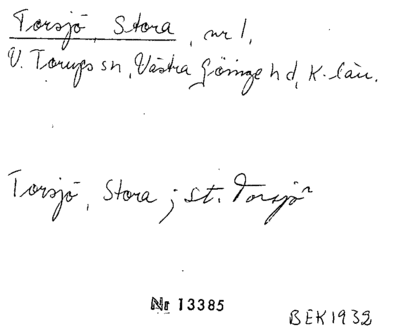 Torsjö, Stora, nr 1,
V. Torups sn, Västra Göinge hd, K. län.
Torsjö, Stora; St. Torsjön
Nr 13385
BEK 1932